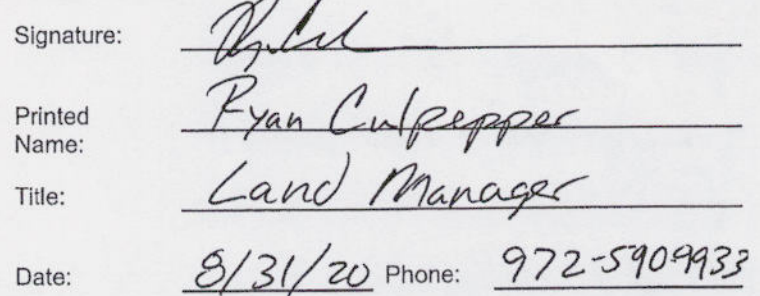 Signature:
Printed Ryan Culpepper
Name:
Title: Land Manager
Date: 8/31/20 Phone: 972-590-9933